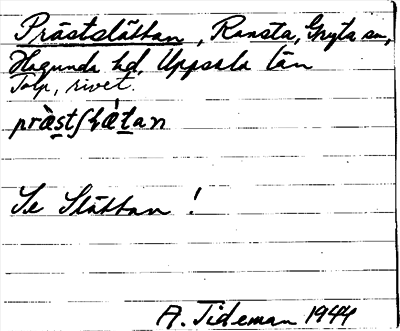 Prästslättan, Ransta, Gryta sn,
Hagunda hd, Uppsala län
Torp, rivet.
Se Slättan!
A. Tideman 1944